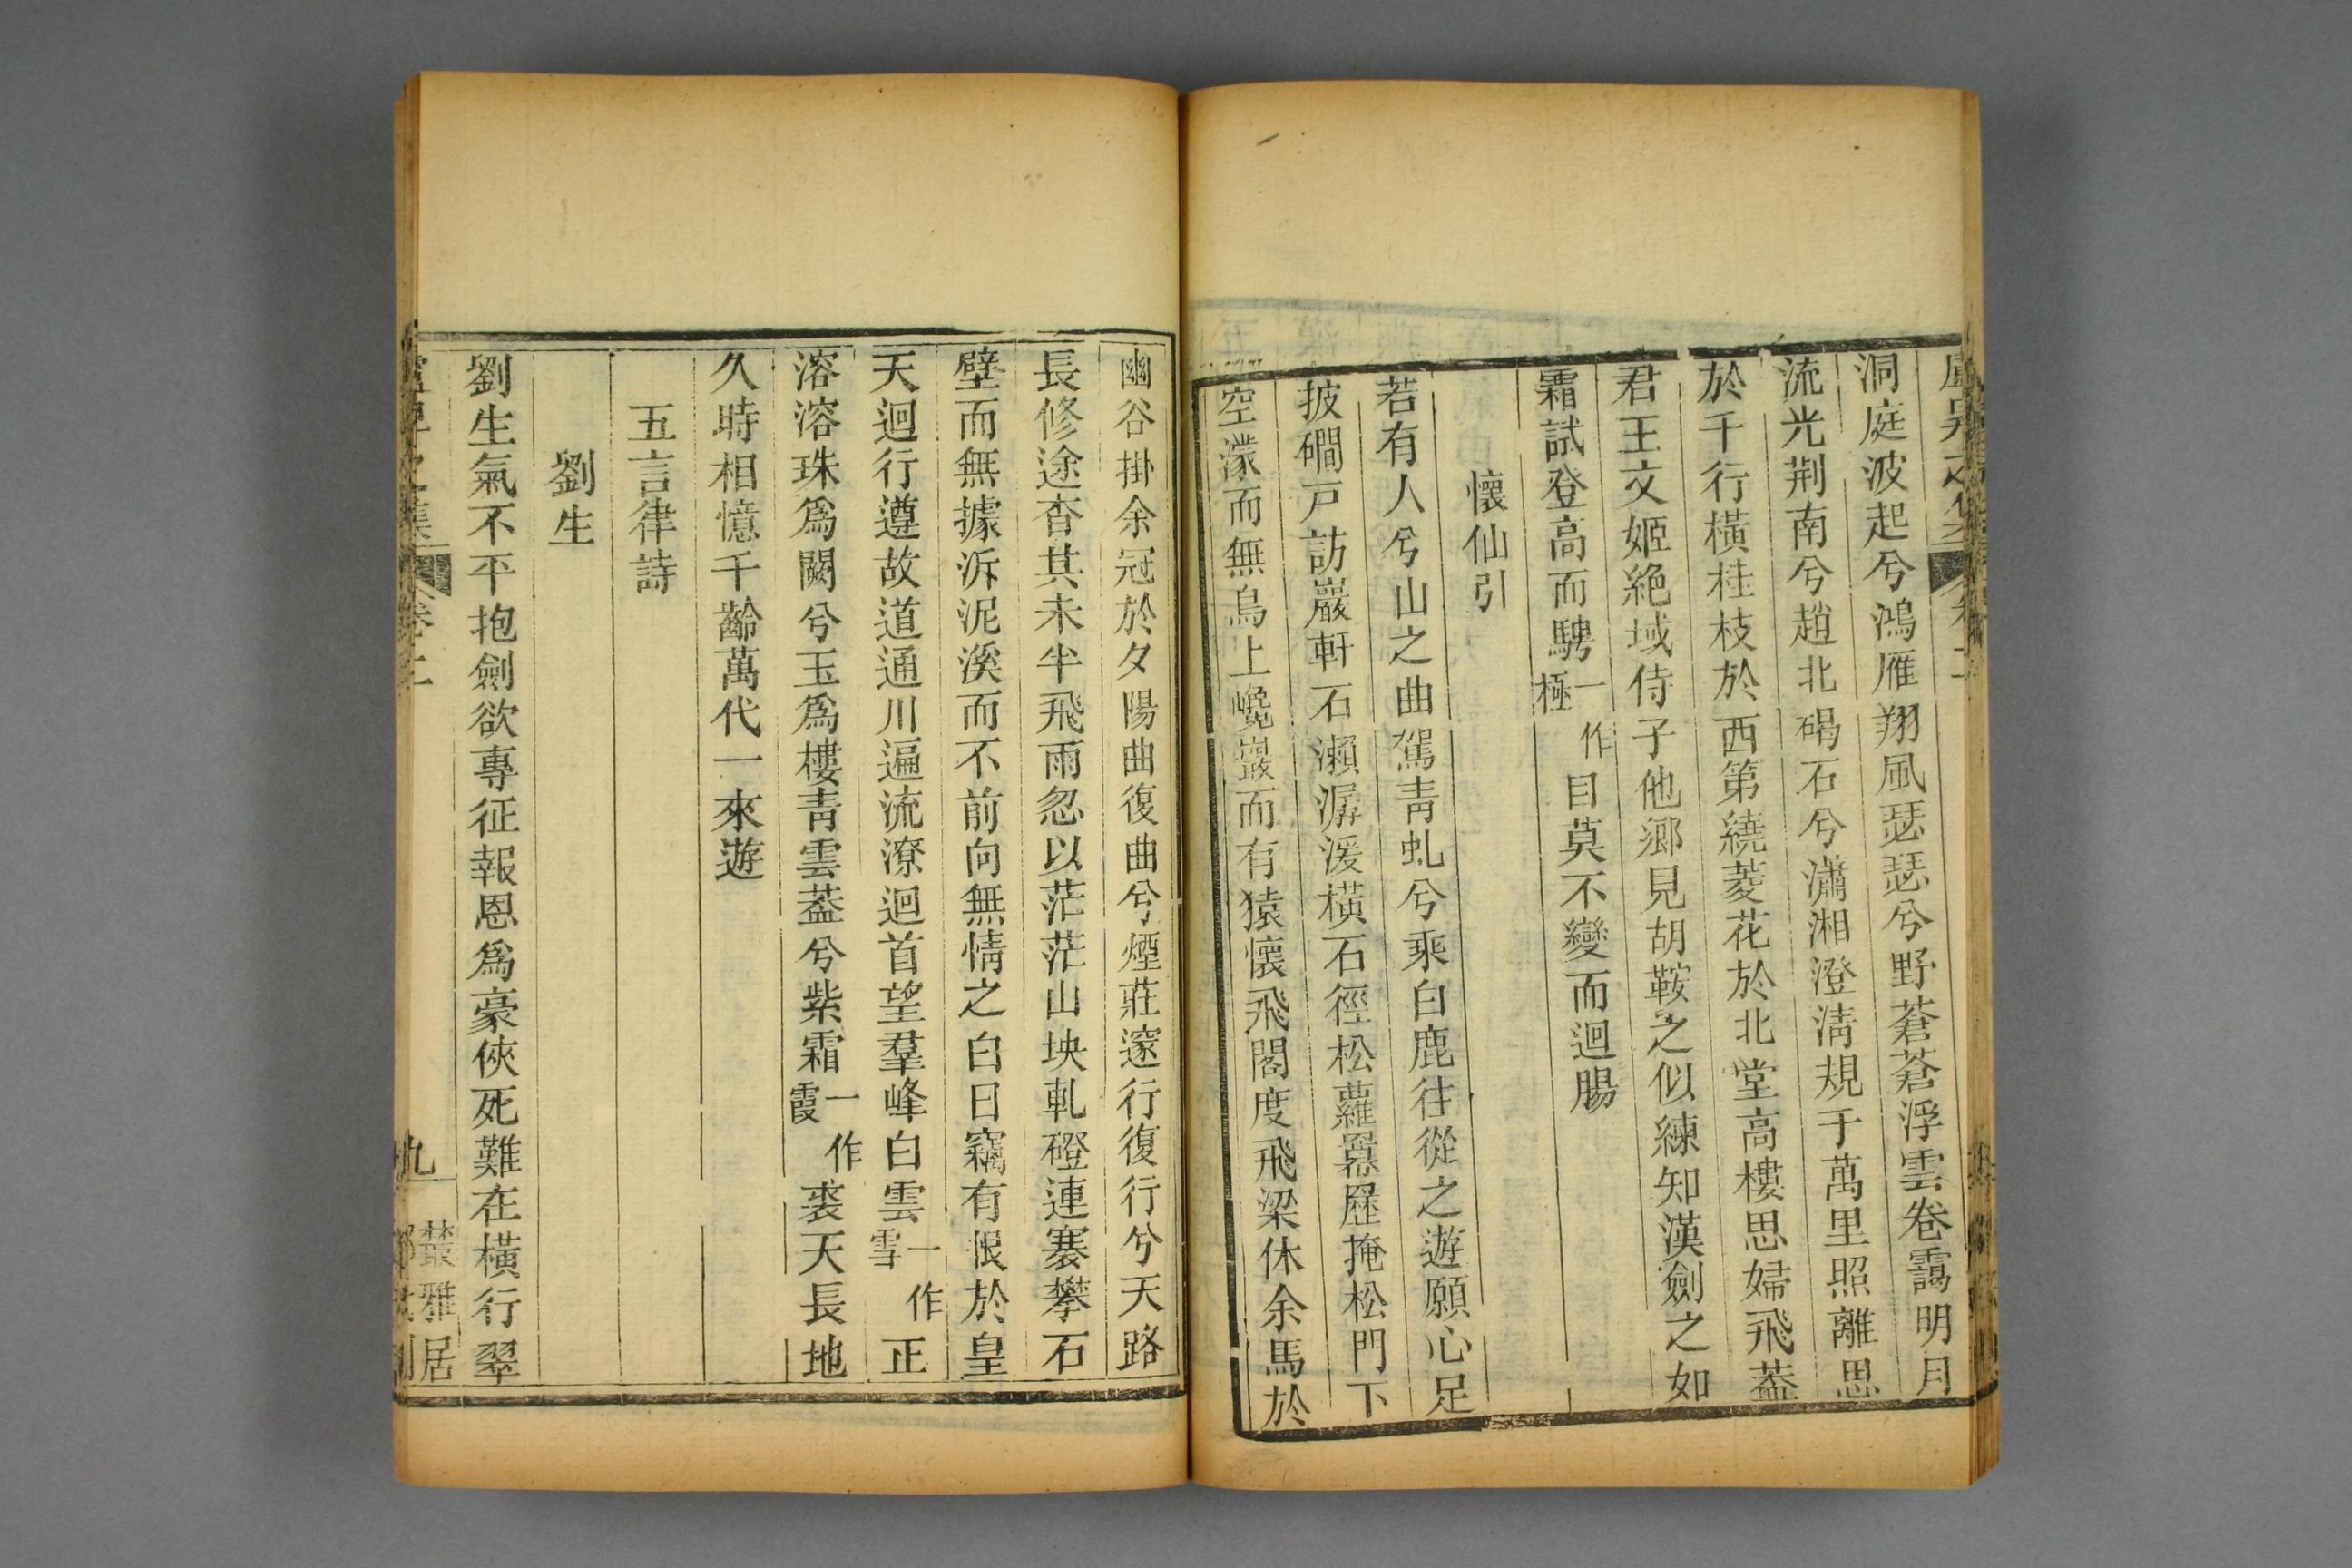 洞庭波起兮鴻雁翔風瑟瑟兮野蒼蒼浮雲卷靄明月
流光荆南兮趙北碣石兮瀟湘澄清規于萬里照離思
於千行橫桂枝於西第繞菱花於北堂高樓思婦飛葢
君王文姬絶域侍子他鄉見胡鞍之似練知漢劍之如
霜試登高而騁一作極目莫不變而迴腸
懷仙引
若有人兮山之曲駕青虬兮乘白鹿往從之遊願心足
披磵戸訪巖軒石瀨潺湲橫石徑松蘿羃歷掩松門下
空濛而無鳥上巉巖而有猿懷飛閣度飛梁休余馬於
幽谷掛余冠於夕陽曲復曲兮煙莊邃行復行兮天路
長修途杳其未半飛雨忽以茫茫山坱軋磴連褰攀石
壁而無據泝泥溪而不前向無情之白日竊有恨於皇
天迴行遵故道通川遍流潦迴首望羣峰白雲一作雪正
溶溶珠爲闕兮玉爲樓青雲葢兮紫霜一作霞裘天長地
久時相憶千齡萬代一來遊
五言律詩
劉生
劉生氣不平抱劍欲專征報恩爲豪俠死難在橫行翠
卷二
九
叢雅居